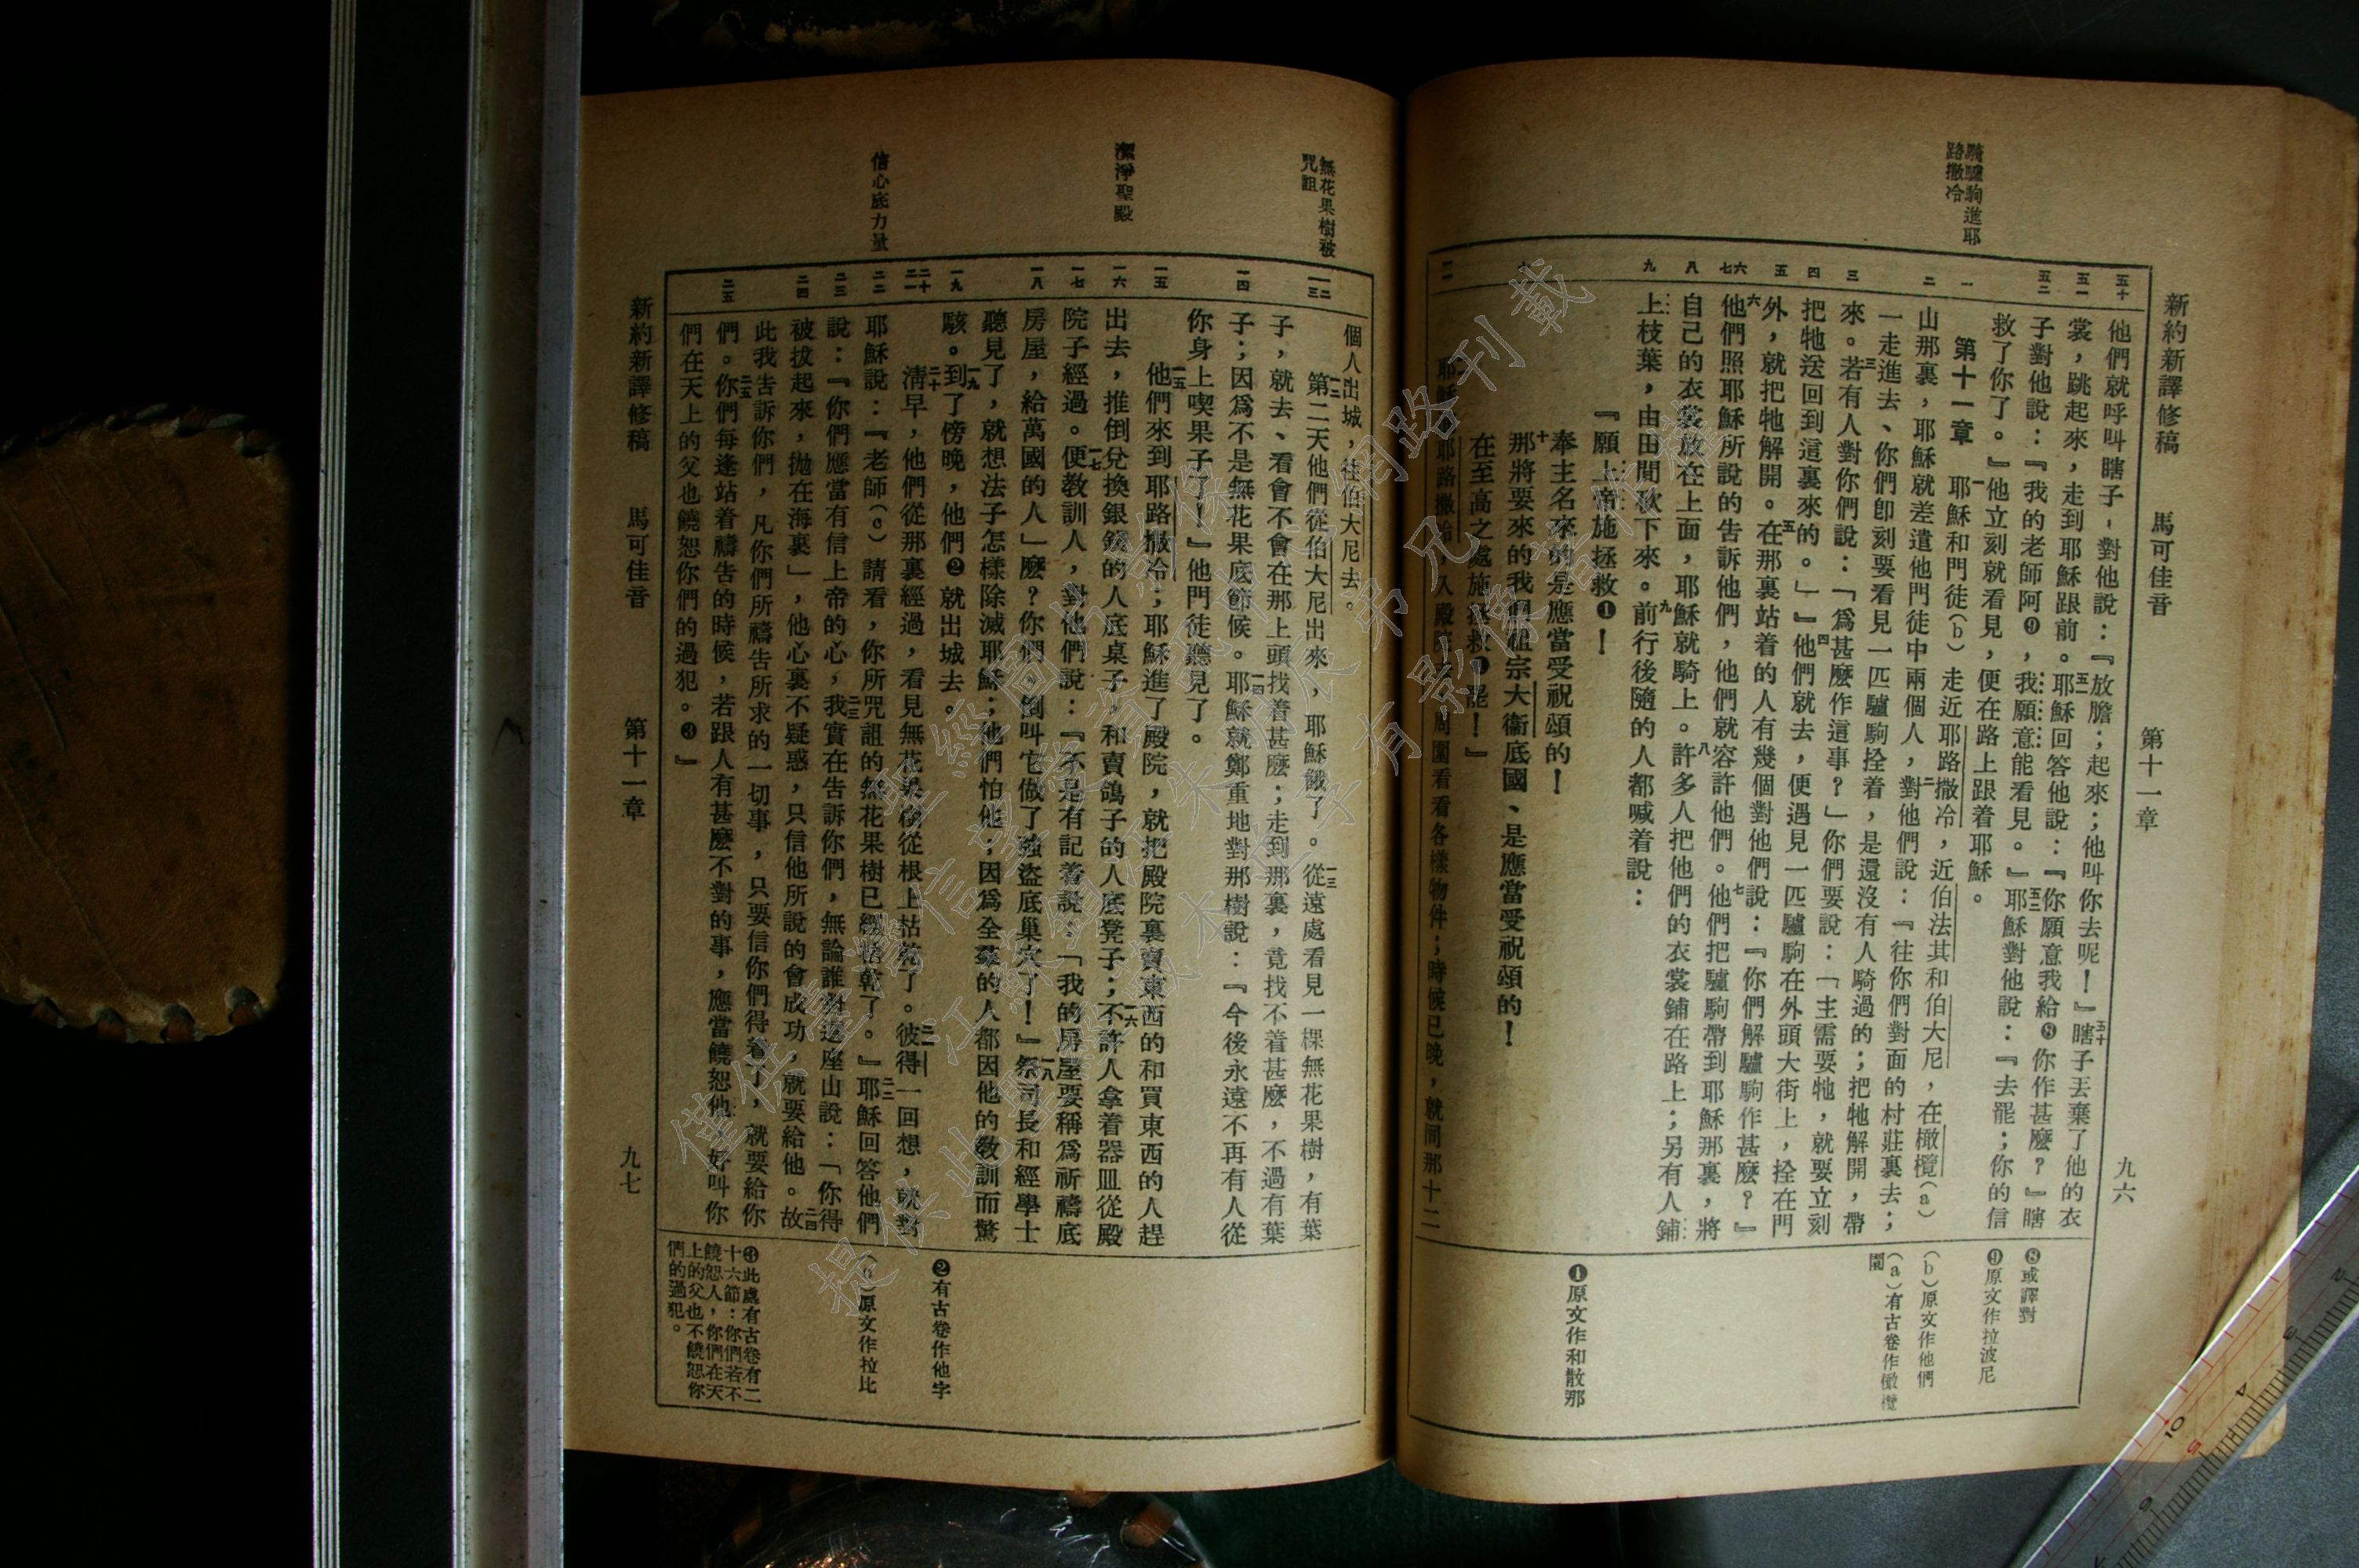 新約新譯修稿　馬可佳音　第十一章　九六
騎驢駒進耶
路撒冷
五十　五一　五二　一　二　三　四　五　六　七　八　九　十　十一
他們就呼叫瞎子，對他說：『放膽；起來；他叫你去呢！』五十瞎子丟棄了他的衣
裳，跳起來，走到耶穌跟前。五一耶穌回答他說：『你願意我給❽你作甚麼？』瞎
子對他說：『我的老師阿❾，我願意能看見。』五二耶穌對他說：『去罷；你的信
救了你了。』他立刻就看見，便在路上跟着耶穌。
第十一章　一耶穌和門徒(b)走近耶路撒冷，近伯法其和伯大尼，在橄欖(a)
山那裏，耶穌就差遣他門徒中兩個人，二對他們說：『往你們對面的村莊裏去；
一走進去、你們卽刻要看見一匹驢駒拴着，是還沒有人騎過的；把牠解開，帶
來。三若有人對你們說：「爲甚麼作這事？」你們要說：「主需要牠，就要立刻
把牠送回到這裏來的。」』四他們就去，便遇見一匹驢駒在外頭大街上，拴在門
外，就把牠解開。五在那裏站着的人有幾個對他們說：『你們解驢駒作甚麼？』
六他們照耶穌所說的告訴他們，他們就容許他們。七他們把驢駒帶到耶穌那裏，將
自己的衣裳放在上面，耶穌就騎上。八許多人把他們的衣裳鋪在路上；另有人鋪
上枝葉，由田間砍下來。九前行後隨的人都喊着說：
『願上帝施拯救❶！
奉主名來的是應當受祝頌的！
十那將要來的我們祖宗大衞底國、是應當受祝頌的！
在至高之處施拯救❶罷！』
耶穌　耶路撒冷，入殿　周圍看看各樣物件；時候已晚，就同那十二
❽或譯對
❾原文作拉波尼
(b)原文作他們
(a)有古卷作橄欖
園
❶原文作和散那
無花果樹被
咒詛
潔淨聖殿
信心底力量
一二　一三　一四　一五　一六　一七　一八　一九　二十　二一　二二　二三　二四　二五
個人出城，往伯大尼去。
一二第二天他們從伯大尼出來，耶穌餓了。一三從遠處看見一棵無花果樹，有葉
子，就去、看會不會在那上頭找着甚麼；走到那裏，竟找不着甚麼，不過有葉
子；因爲不是無花果底節候。一四耶穌就鄭重地對那樹說：『今後永遠不再有人從
你身上喫果子了！』他門徒聽見了。
一五他們來到耶路撒冷；耶穌進了殿院，就把殿院裏賣東西的和買東西的人趕
出去，推倒兌換銀錢的人底桌子，和賣鴿子的人底凳子；一六不許人拿着器皿從殿
院子經過。一七便教訓人，對他們說：『不是有記着說：「我的房屋要稱爲祈禱底
房屋，給萬國的人」麼？你們倒叫它做了強盜底巢穴了！』一八祭司長和經學士
聽見了，就想法子怎樣除滅耶穌；他們怕他；因爲全羣的人都因他的教訓而驚
駭。一九到了傍晚，他們❷就出城去。
二十淸早，他們從那裏經過，看見無花果樹從根上枯乾了。二一彼得一回想，就對
耶穌說：『老師(c)請看，你所咒詛的無花果樹已經枯乾了。』二二耶穌回答他們
說：『你們應當有信上帝的心，二三我實在告訴你們，無論誰對這座山說：「你得
被拔起來，拋在海裏」，他心裏不疑惑，只信他所說的會成功，就要給他。二四故
此我告訴你們，凡你們所禱告所求的一切事，只要信你們得着了，就要給你
們。二五你們每逢站着禱告的時候，若跟人有甚麼不對的事，應當饒恕他，好叫你
們在天上的父也饒恕你們的過犯。❸』
❷有古卷作他字
(c)原文作拉比
❸此處有古卷有二
十六節：你們若不
饒恕人，你們在天
上的父也不饒恕你
們的過犯。
新約新譯修稿　馬可佳音　第十一章　九七